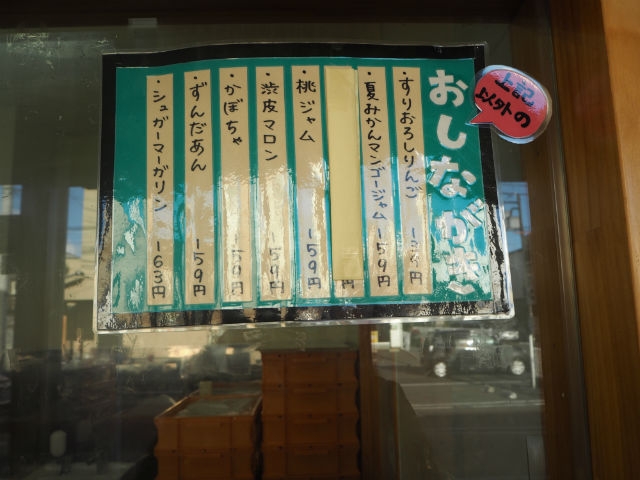 上記
以外の
おしながき
・すりおろしりんご
・夏みかんマンゴージャム 159円
円
・桃ジャム 159円
・渋皮マロン 159円
・かぼちゃ 159円
・ずんだあん 159円
・シュガーマーガリン 163円